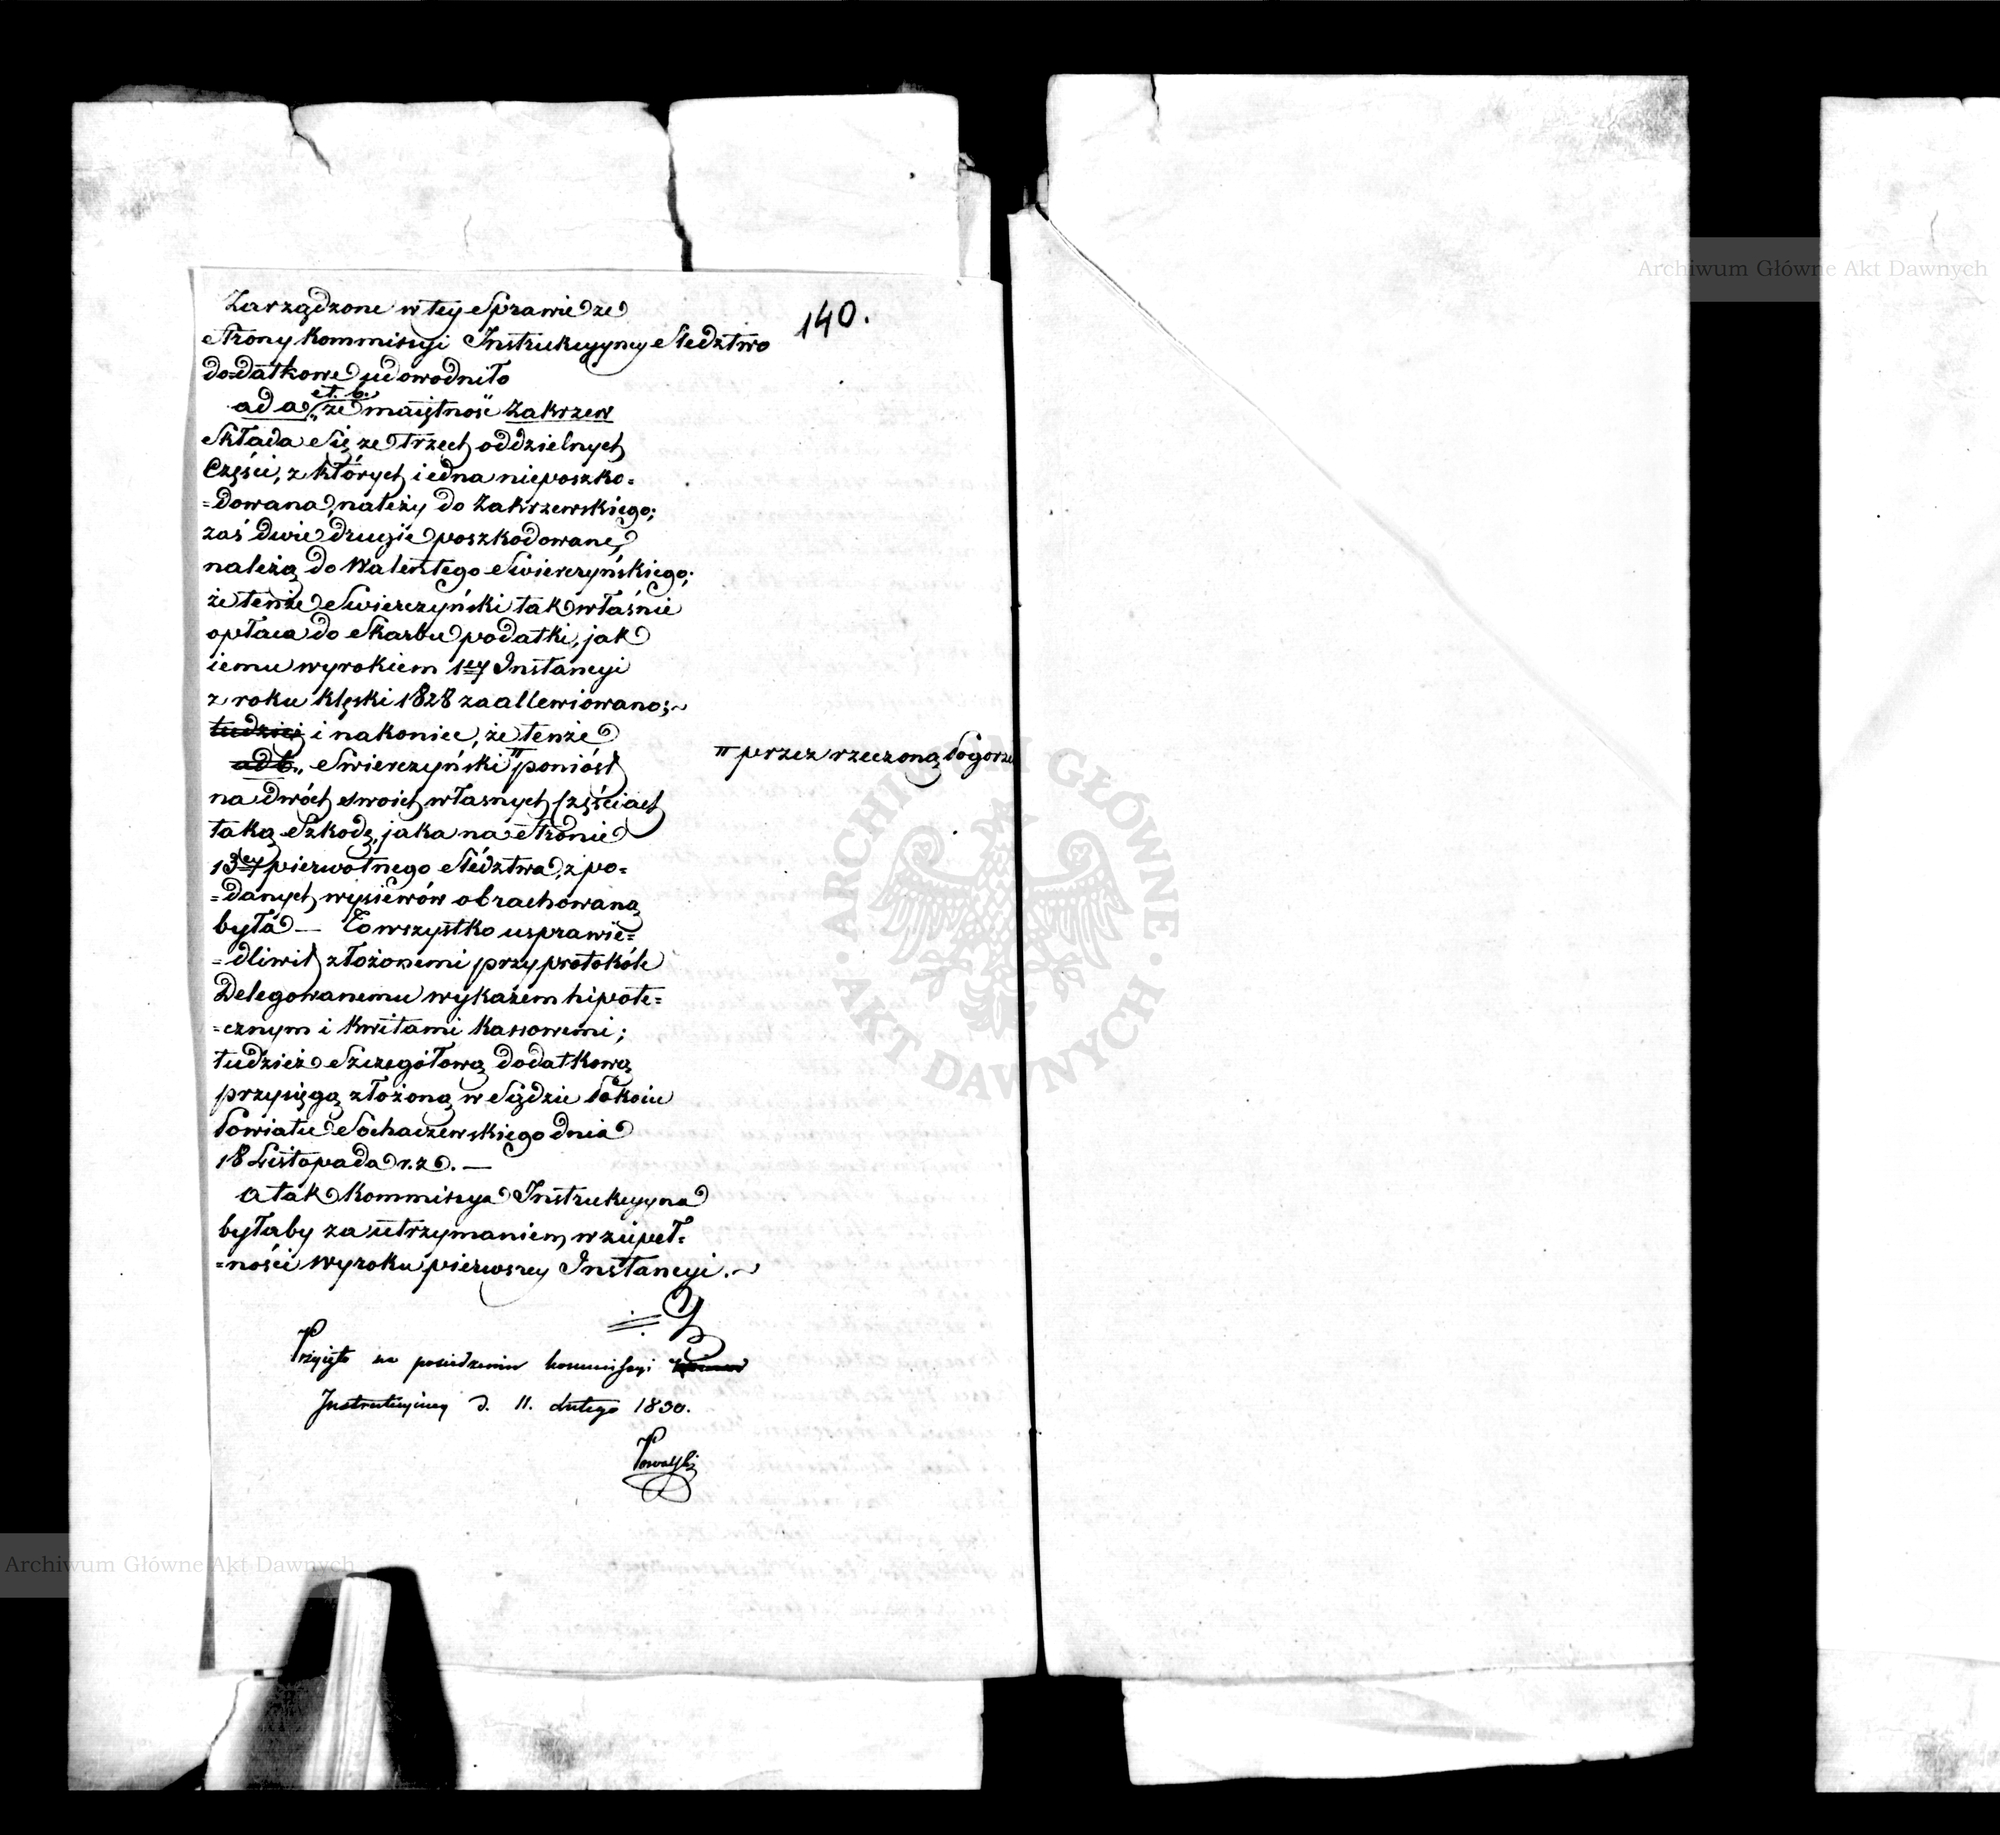 140.
Zarządzone w tey Sprawie ze
Strony Kommissyi Instrukcyyney Sledztwo
dodatkowe udowodniło
et. b.
ad a„ że maiętność Zakrzew
Składa Się ze trzech oddzielnych
Części, z których iedna nieposzko=
=dowana, należy do Zakrzewskiego;
zaś dwie drugie poszkodowane,
należą do Walentego Swierczyńskiego;
że tenże Swierczyński tak właśnie
opłaca do Skarbu podatki, jak
iemu wyrokiem 1ey Instancyi
z roku klęski 1828 zaallewiowano;
tudzież i nakoniec, że tenże
ad b„ Swierczyński π poniósł
π przez rzeczoną Pogorze
na dwóch swoich własnych Częściach
taką Szkodę, jaka na Stronie
13ey pierwotnego Śledztwa, z po=
=danych wysiewów obrachowaną
była — To wszystko usprawie=
=dliwił złożonemi przy protokóle
Delegowanemu wykazem hipote=
=cznym i kwitami kassowemi;
tudzież Szczegółową dodatkową
przysięgą złożoną w Sądzie Pokoiu
Powiatu Sochaczewskiego dnia
18 Listopada r. z. —
A tak Kommissya Instrukcyyna
byłaby za utrzymaniem w zupeł=
=ności wyroku pierwszey Instancyi.
Przyięto na posiedzeniu kommissyi
Instrukcyiney d. 11. Lutego 1830.
ARCHIWUM GŁÓWNE
AKT DAWNYCH
Archiwum Główne Akt Dawnych
Archiwum Główne Akt Dawnych